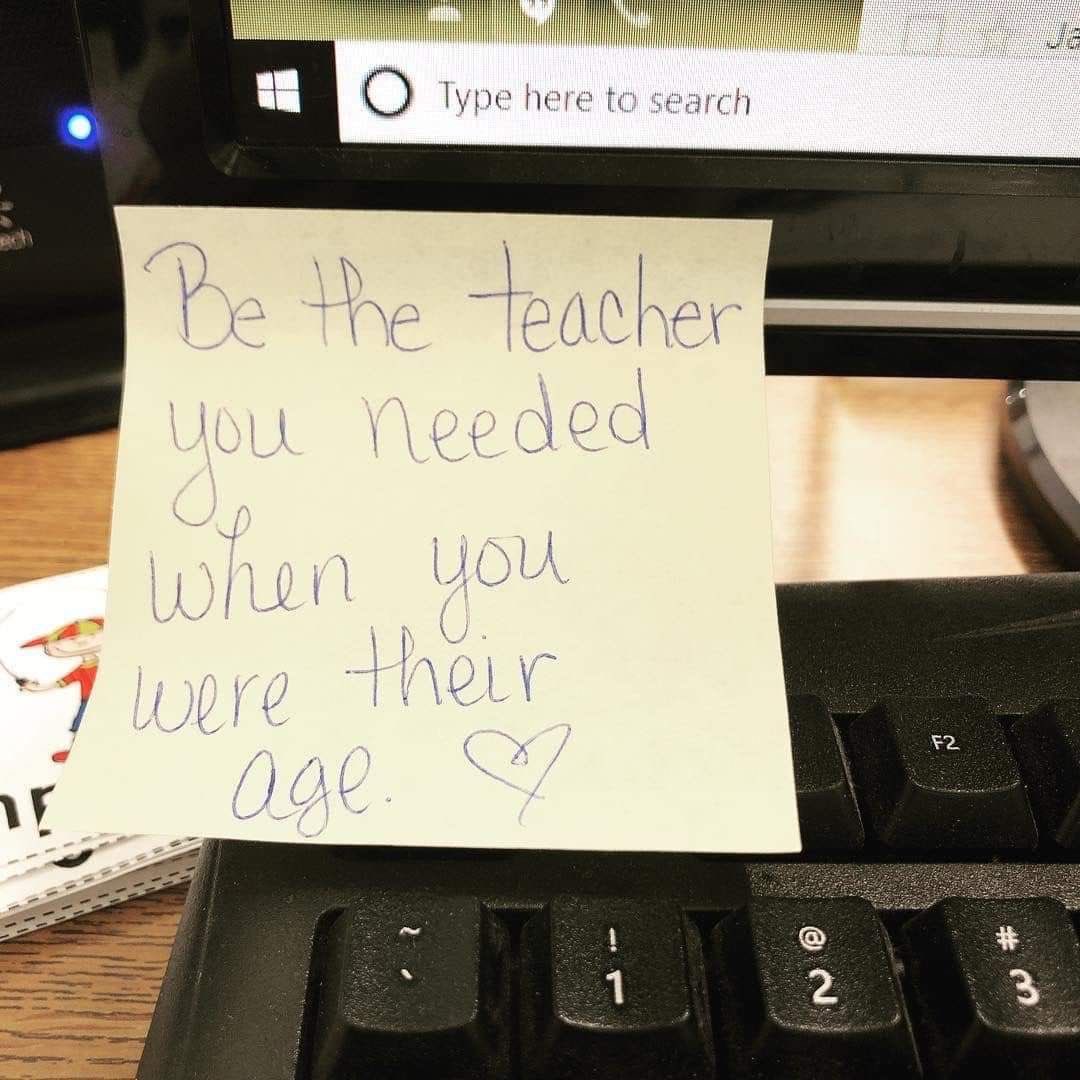 Type here to search
Be the teacher
you needed
when you
were their
age.
F2
~ ! @ #
` 1 2 3